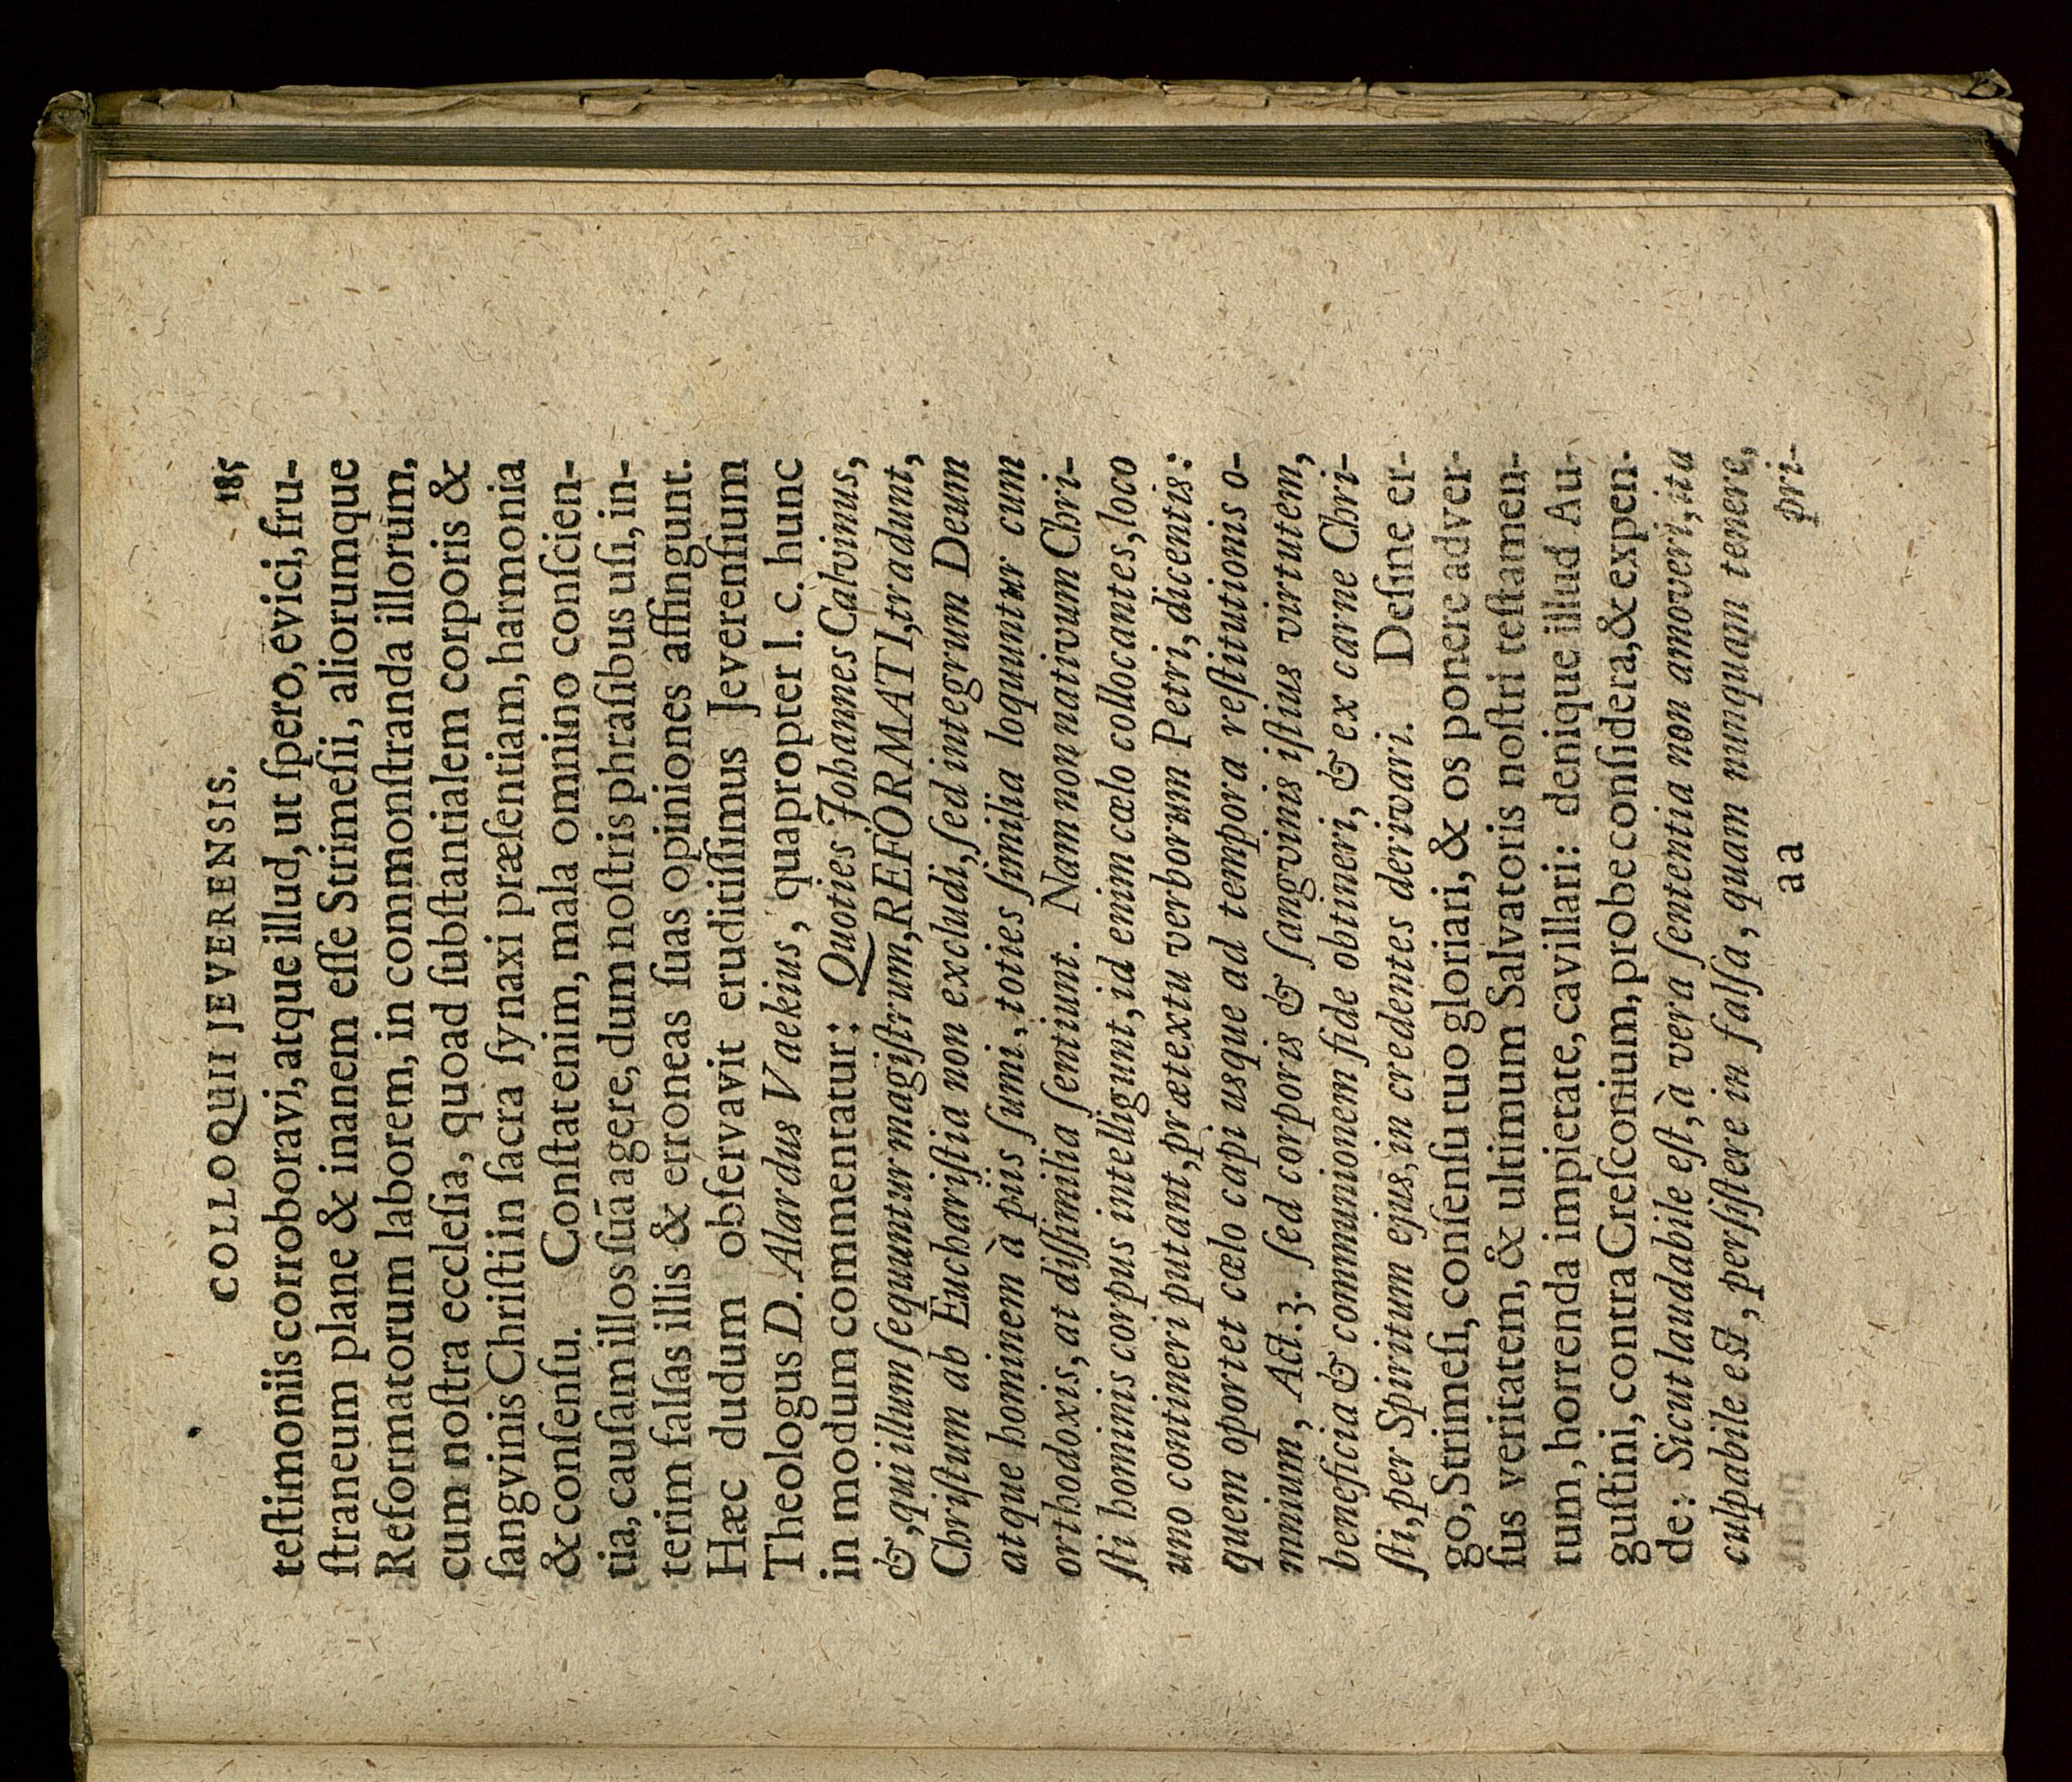 COLLOQUII JEVERENSIS. 185
teſtimoniis corroboravi, atque illud, ut ſpero, evici, fru-
ſtraneum plane & inanem eſſe Strimeſii, aliorumque
Reformatorum laborem, in commonſtranda illorum,
cum noſtra eccleſia, quoad ſubſtantialem corporis &
ſangvinis Chriſti in ſacra ſynaxi præſentiam, harmonia
& conſenſu. Conſtat enim, mala omnino conſcien-
tia, cauſam illos ſuā agere, dum noſtris phraſibus uſi, in-
terim falſas illis & erroneas ſuas opiniones affingunt.
Hæc dudum obſervavit eruditiſſimus Jeverenſium
Theologus D. Alardus Vaekius, quapropter l. c. hunc
in modum commentatur: Quoties Johannes Calvinus,
&, qui illum ſequuntur magiſtrum, REFORMATI, tradunt,
Chriſtum ab Euchariſtia non excludi, ſed integrum Deum
atque hominem à piis ſumi, toties ſimilia loquuntur cum
orthodoxis, at diſſimilia ſentiunt. Nam non nativum Chri-
ſti hominis corpus intelligunt, id enim cœlo collocantes, loco
uno contineri putant, prætextu verborum Petri, dicentis:
quem oportet cœlo capi usque ad tempora reſtitutionis o-
mnium, Act. 3. ſed corporis & ſangvinis iſtius virtutem,
beneficia & communionem fide obtineri, & ex carne Chri-
ſti, per Spiritum ejus, in credentes derivari. Deſine er-
go, Strimeſi, conſenſu tuo gloriari, & os ponere adver-
ſus veritatem, & ultimum Salvatoris noſtri teſtamen-
tum, horrenda impietate, cavillari: denique illud Au-
guſtini, contra Creſconium, probe conſidera, & expen-
de: Sicut laudabile eſt, à vera ſententia non amoveri, ita
culpabile eſt, perſiſtere in falſa, quam nunquam tenere,
aa pri-